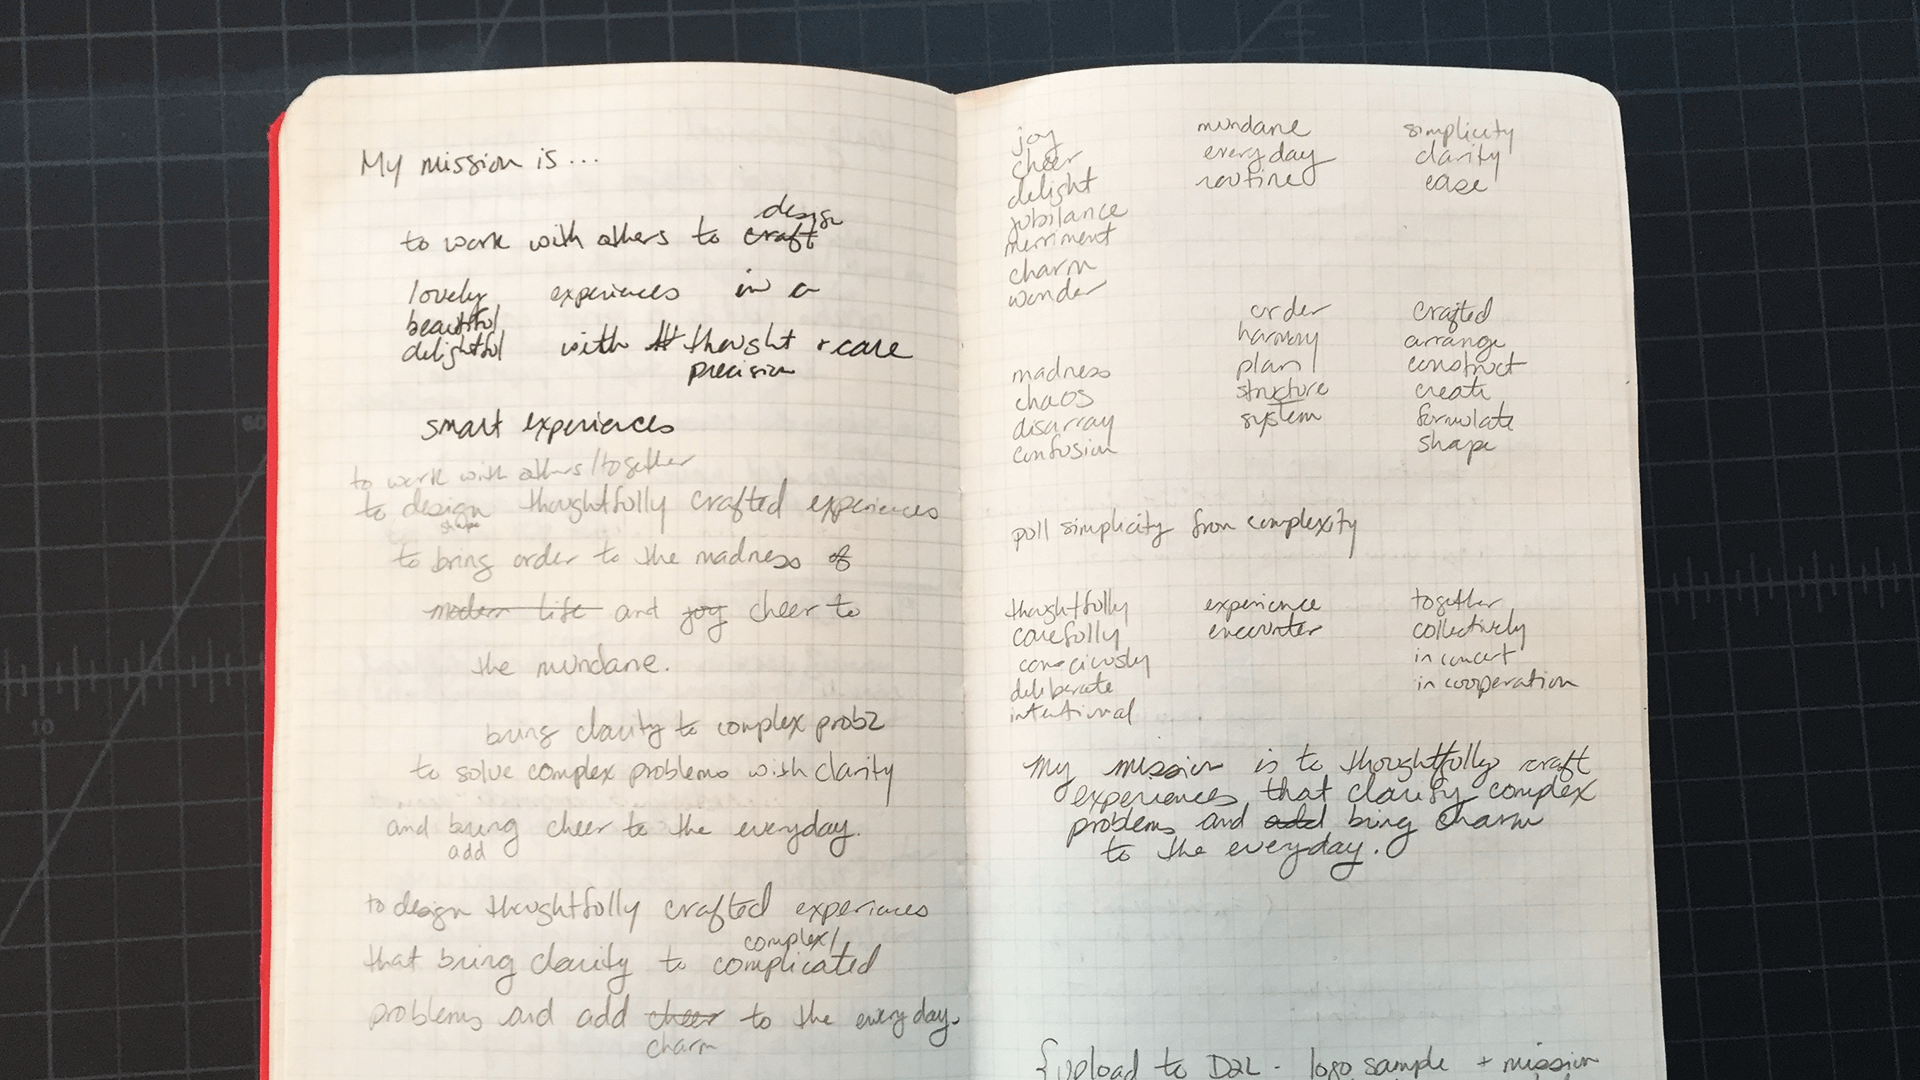 My mission is ...
design
to work with others to craft
lovely experiences in a
beautiful
delightful with th thought + care
precision
smart experiences
to work with others/together
to design thoughtfully crafted experiences
shape
to bring order to the madness of
modern life and joy cheer to
the mundane.
bring clarity to complex prob
to solve complex problems with clarity
and bring cheer to the everyday.
add
to design thoughtfully crafted experiences
complex/
that bring clarity to complicated
problems and add cheer to the everyday.
charm
joy
cheer
delight
jubilance
merriment
charm
wonder
mundane
everyday
routine
simplicity
clarity
ease
madness
chaos
disarray
confusion
order
harmony
plan
structure
system
crafted
arrange
construct
create
formulate
shape
pull simplicity from complexity
thoughtfully
carefully
consciously
deliberate
intentional
experience
encounter
together
collectively
in concert
in cooperation
My mission is to thoughtfully craft
experiences that clarify complex
problems and add bring charm
to the everyday.
{upload to D2L - logo sample + mission
10